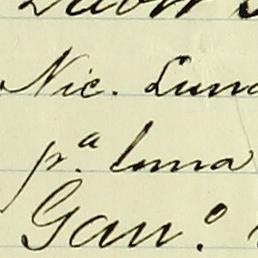 Nic. Luna
p.ª loma
Gan.º